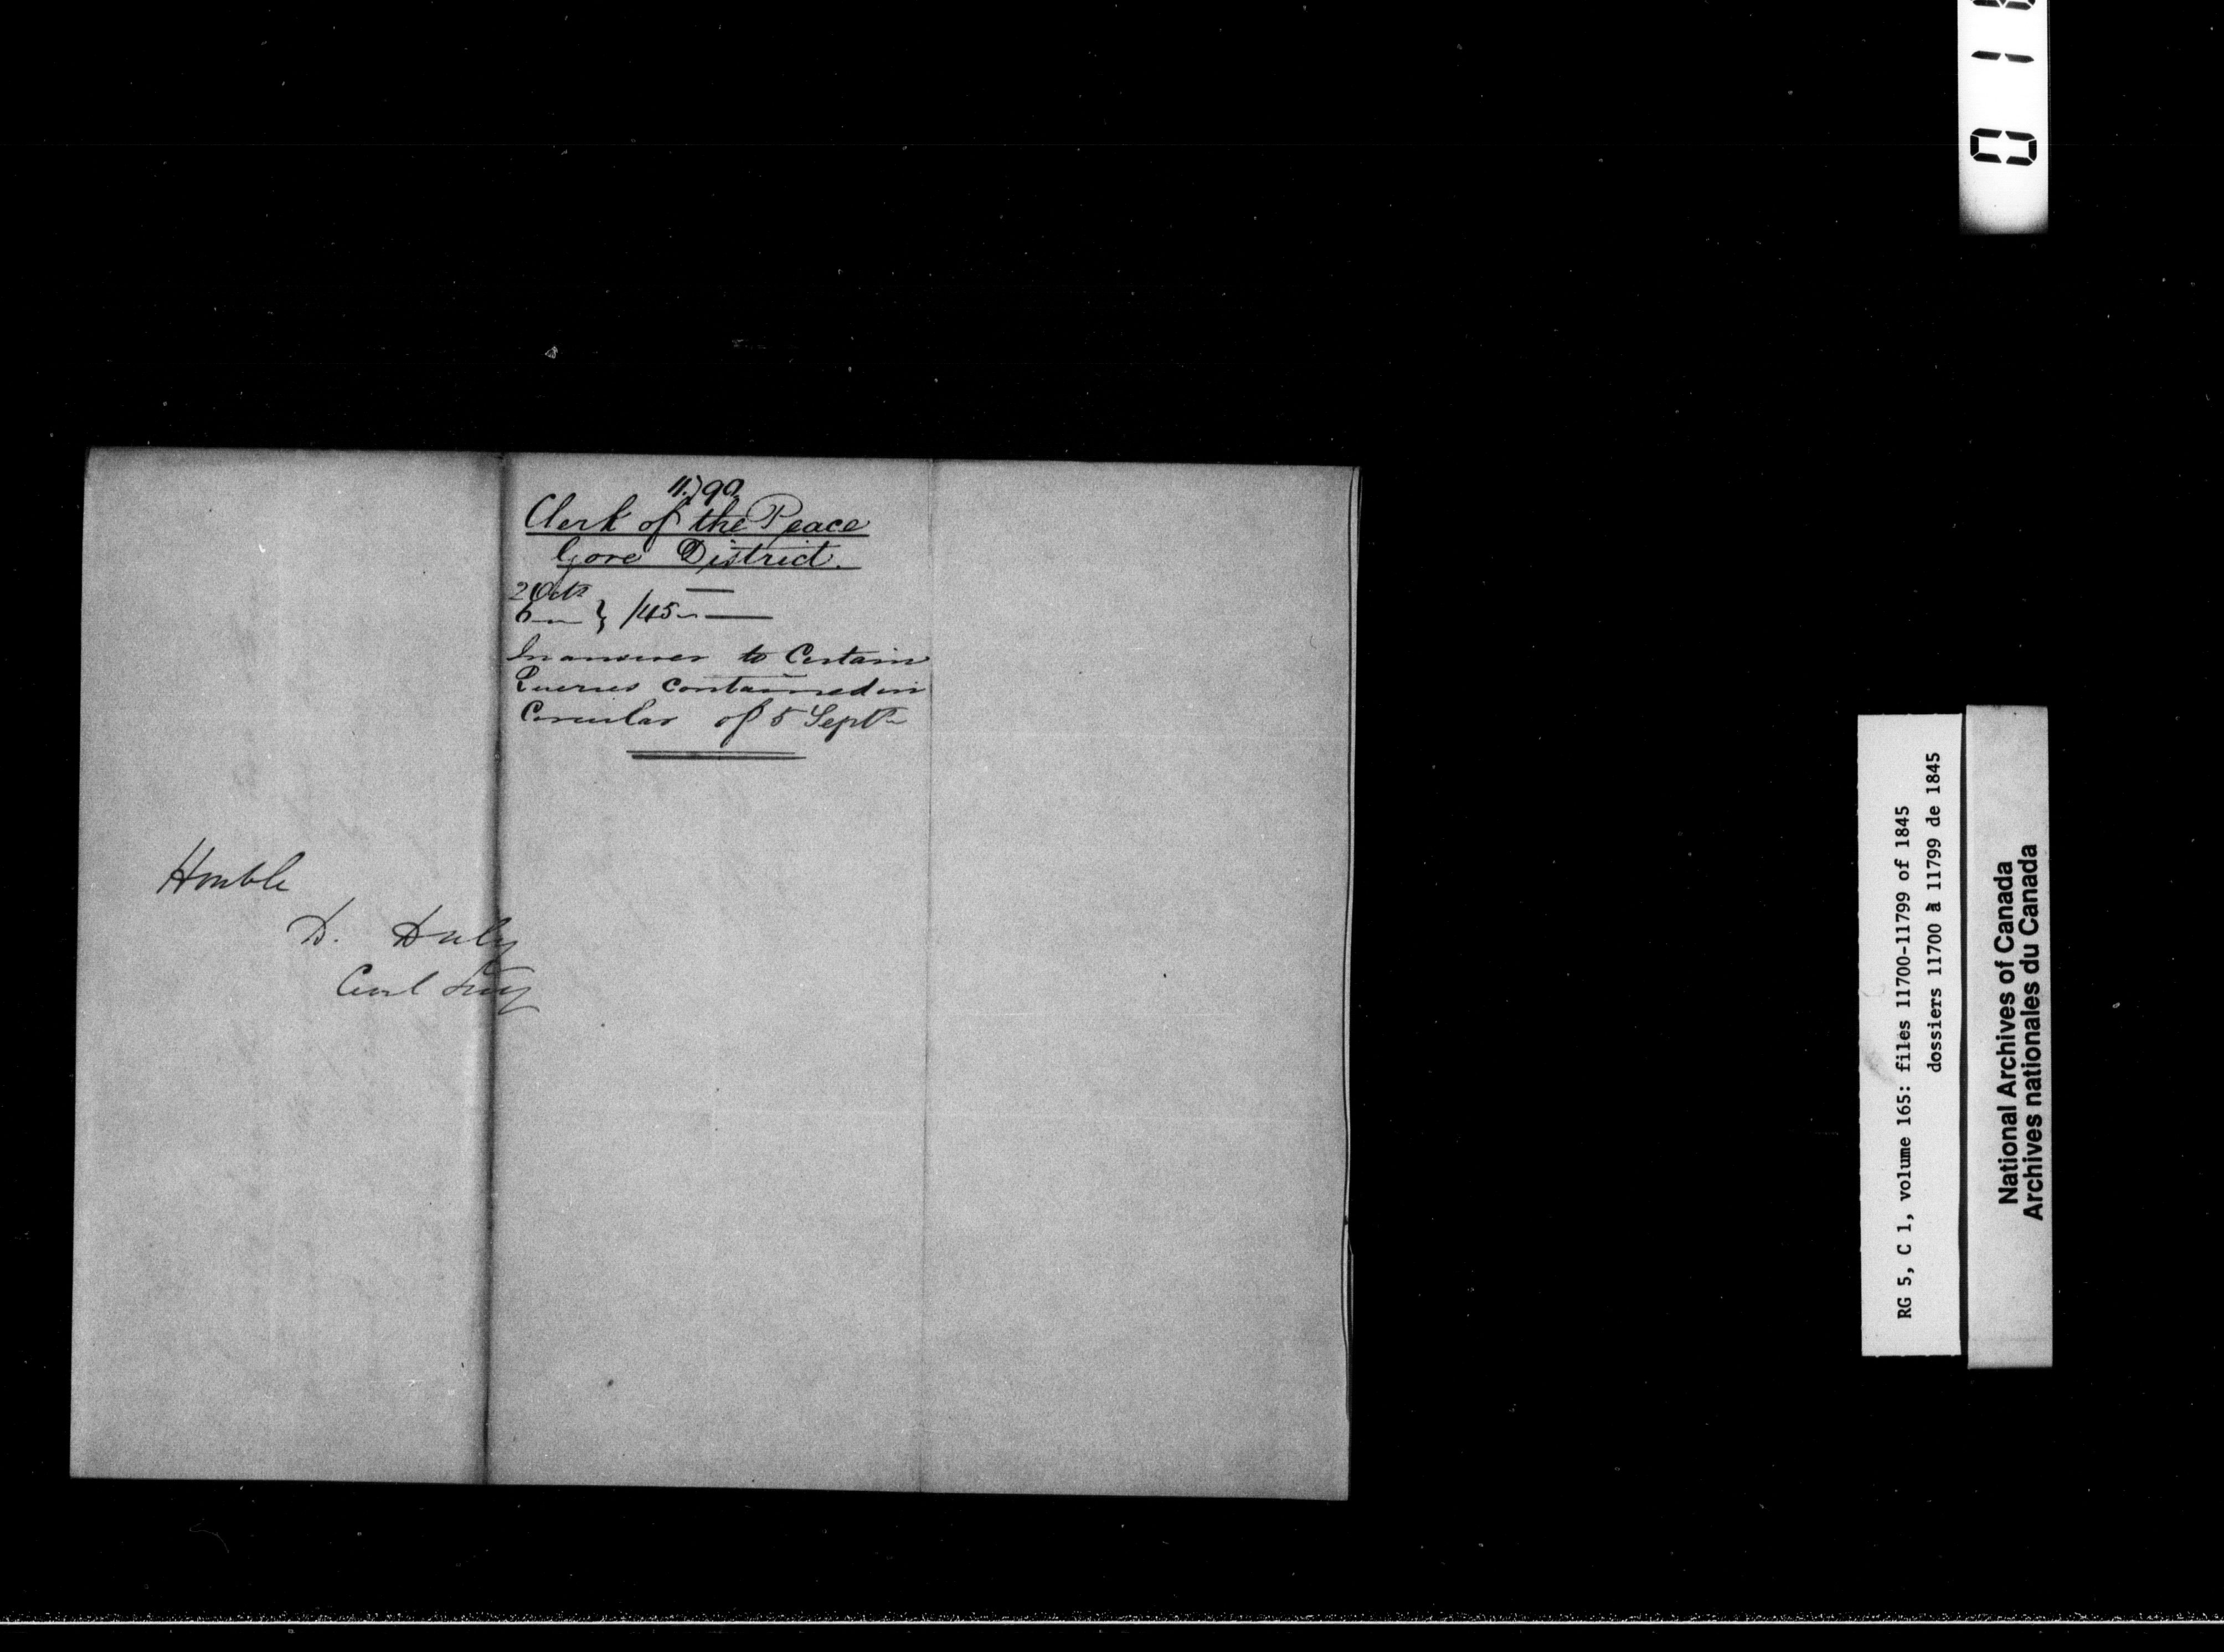 11.799
Clerk of the Peace
Gore District.
2 Octr
6 — } /45
In answer to Certain
Queries contained in
Circular of 5 Septr
Honble
D. Daly
Civil Secy
RG 5, C 1, volume 165: files 11700-11799 of 1845
dossiers 11700 à 11799 de 1845
National Archives of Canada
Archives nationales du Canada